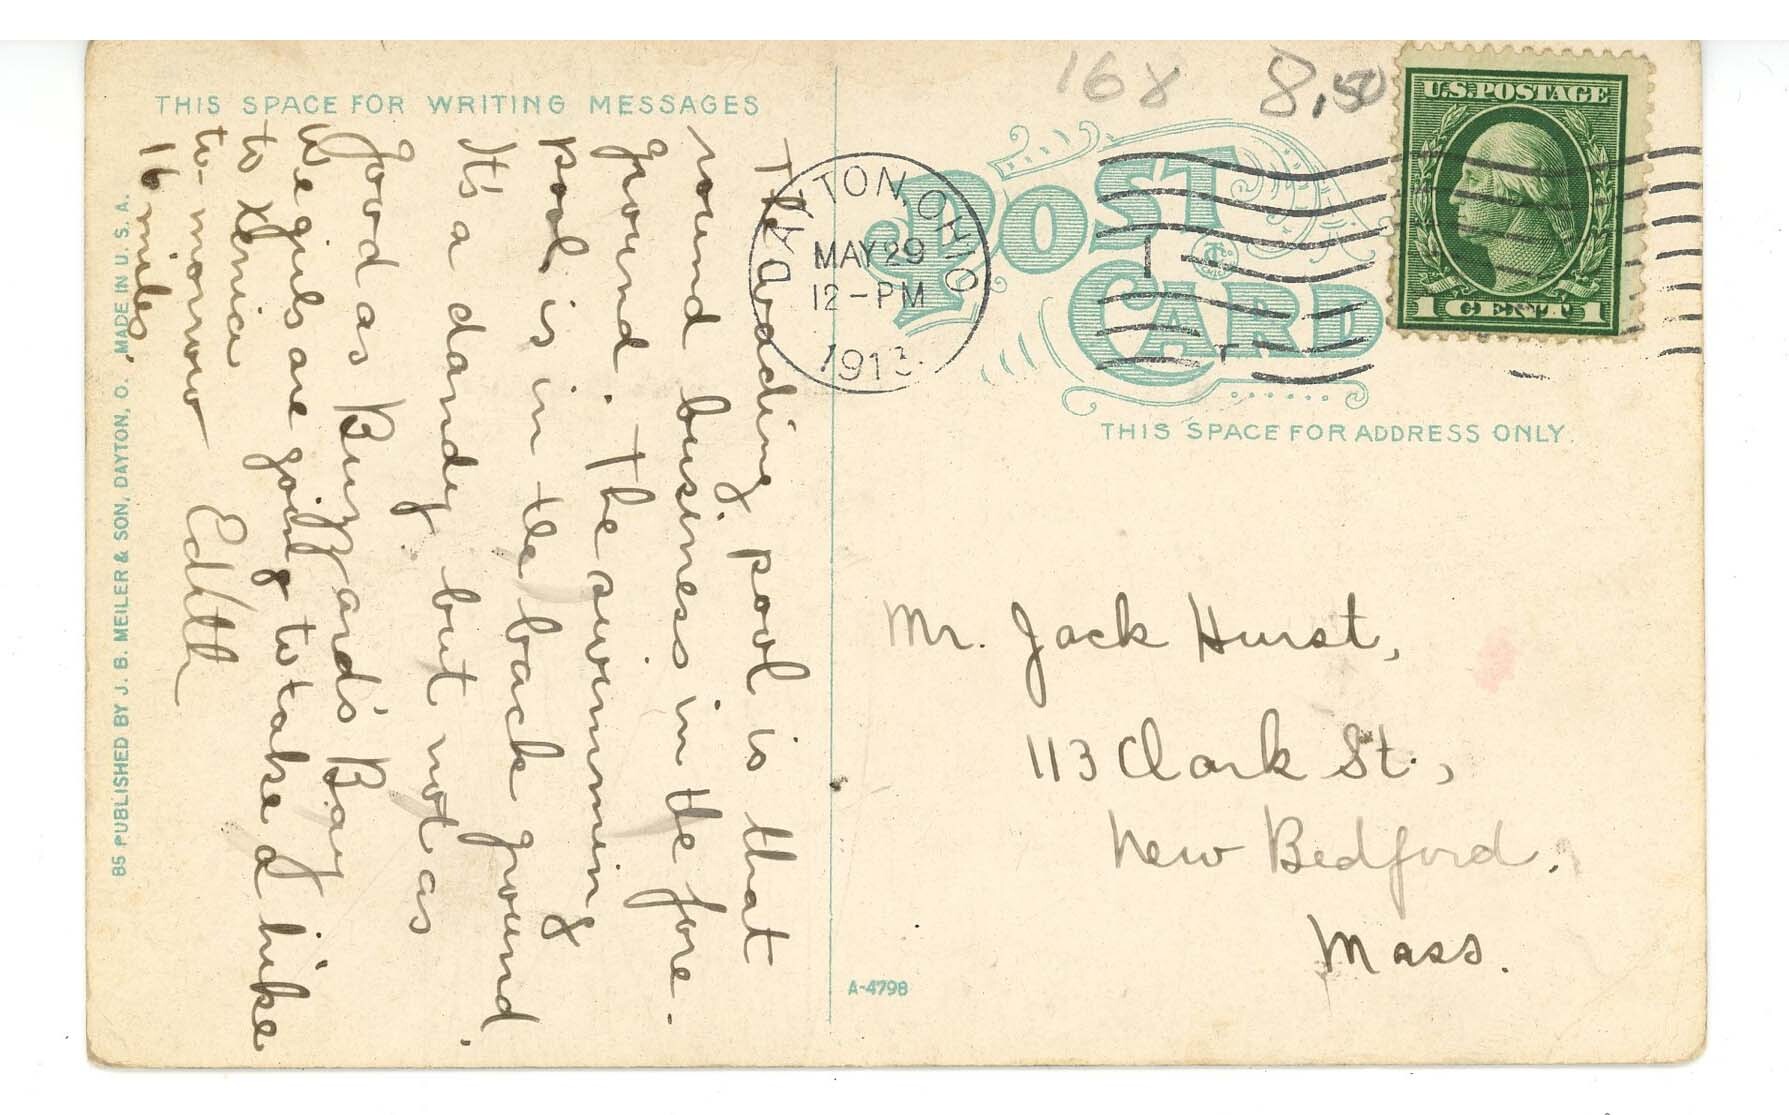 THIS SPACE FOR WRITING MESSAGES
The wading pool is that
round business in the fore-
ground. The swimming
pool is in the back ground.
It's a dandy but not as
good as Buzzard's Bay
We girls are going to take a hike
to Xenia
to-morrow Edith
16 miles
85 PUBLISHED BY J. B. MEILER & SON, DAYTON, O. MADE IN U. S. A.
168 8,50
U.S. POSTAGE
1 CENT 1
DAYTON, OHIO
MAY 29
12-PM
1913
POST
CARD
THIS SPACE FOR ADDRESS ONLY.
Mr. Jack Hurst,
113 Clark St.,
New Bedford,
Mass.
A-4798